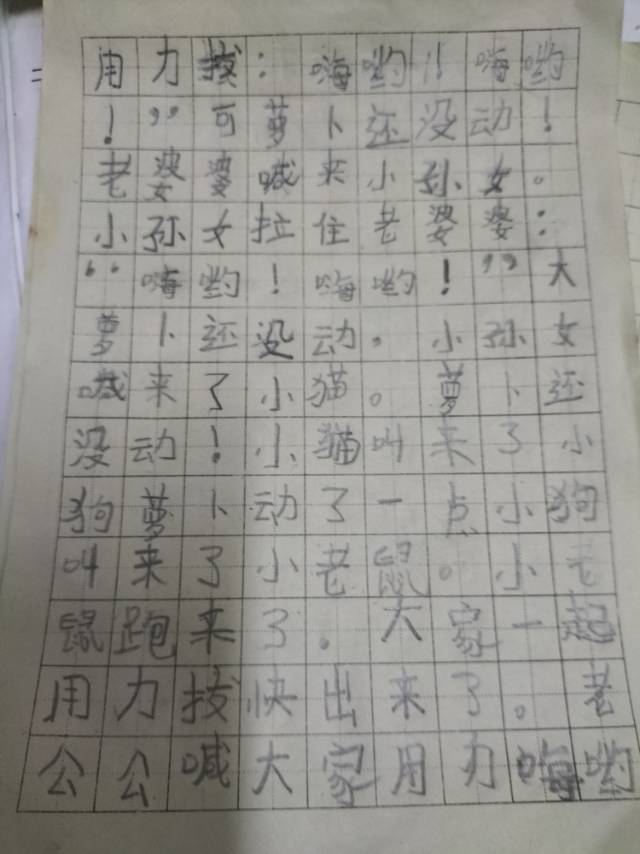 用力拔：嗨哟！！嗨哟
！”可萝卜还没动！
老婆婆喊来小孙女。
小孙女拉住老婆婆：
“嗨哟！嗨哟！”大
萝卜还没动。小孙女
喊来了小猫。萝卜还
没动！小猫叫来了小
狗萝卜动了一点小狗
叫来了小老鼠。小老
鼠跑来了。大家一起
用力拔快出来了。老
公公喊大家用力嗨哟